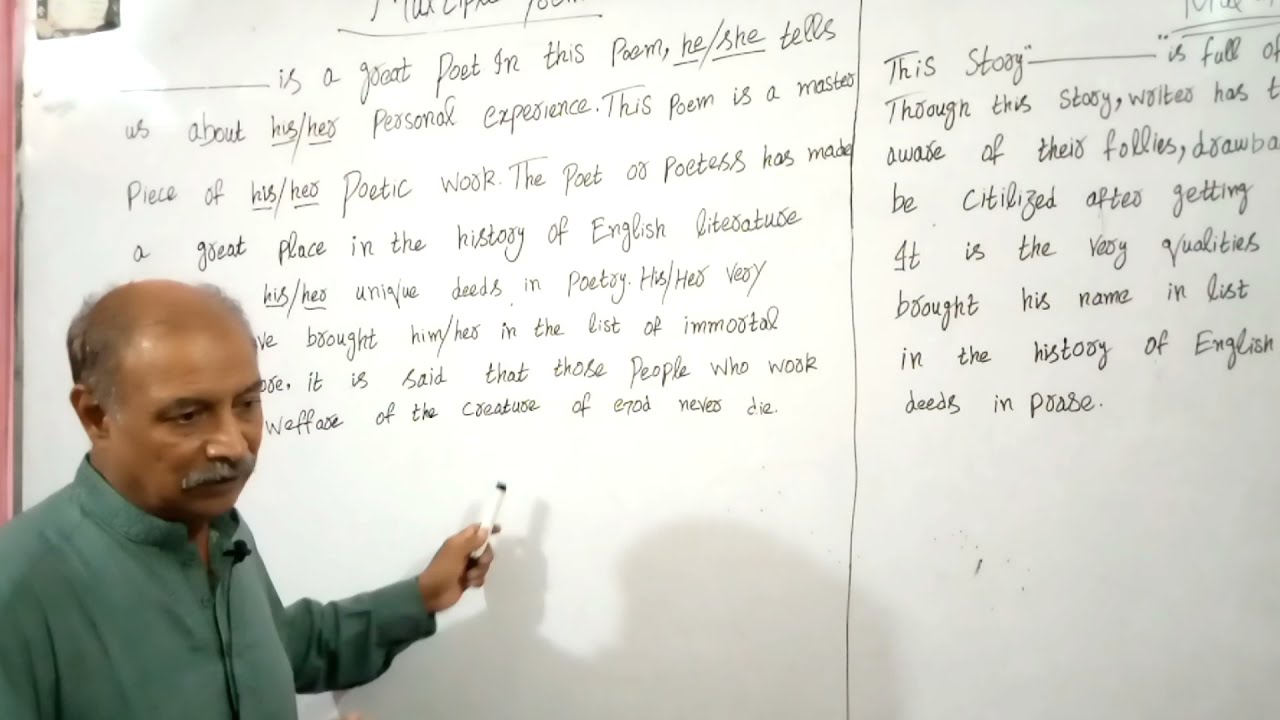 Multiple Poem
________ is a great Poet In this Poem, he/she tells
us about his/her Personal experience. This Poem is a master
Piece of his/her Poetic work. The Poet or Poetess has made
a great place in the history of English literature
his/her unique deeds in Poetry. His/Her very
ve brought him/her in the list of immortal
ore, it is said that those People who work
welfare of the creature of God never die.
This Story "________" is full of
Through this Story, writer has t
aware of their follies, drawba
be Citilized after getting
It is the very qualities
brought his name in list
in the history of English
deeds in prase.